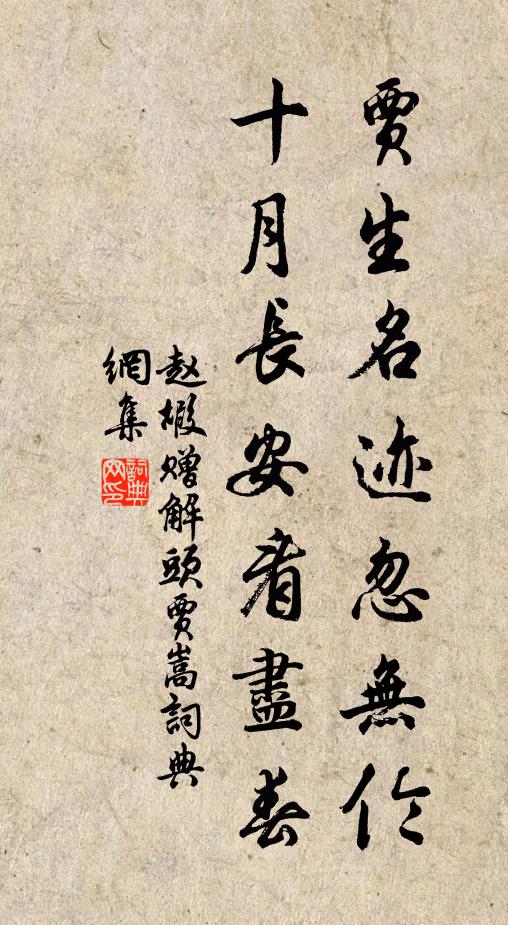 賈生名迹忽無伦
十月長安看盡春
赵嘏赠解頭賈嵩詞典
網集
詞典
网印